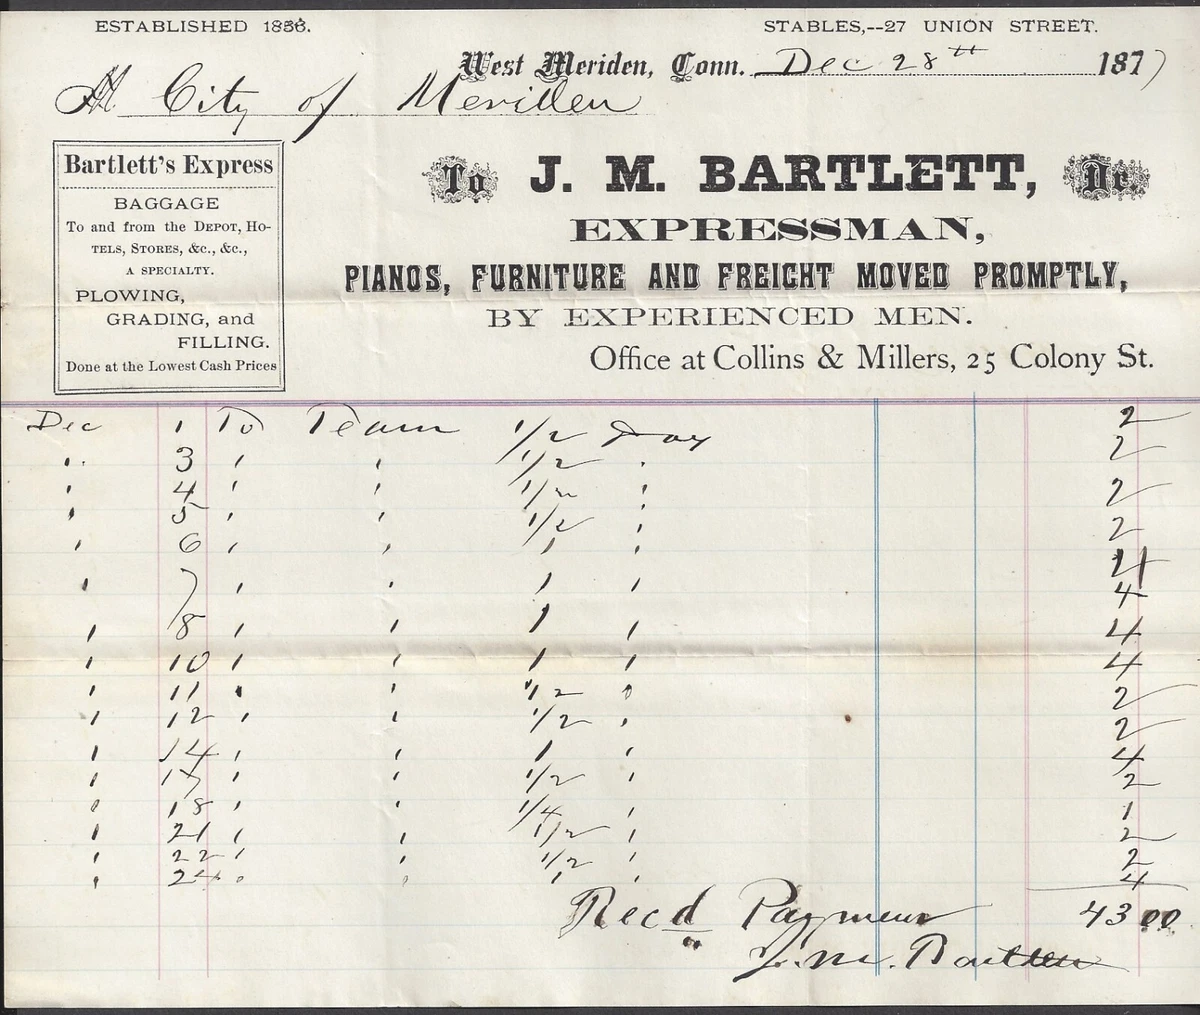 ESTABLISHED 1856.
STABLES,--27 UNION STREET.
West Meriden, Conn. Dec 28th 1877
M City of Meriden
Bartlett's Express
BAGGAGE
To and from the DEPOT, HO-
TELS, STORES, &c., &c.,
A SPECIALTY.
PLOWING,
GRADING, and
FILLING.
Done at the Lowest Cash Prices
To J. M. BARTLETT, Dr.
EXPRESSMAN,
PIANOS, FURNITURE AND FREIGHT MOVED PROMPTLY,
BY EXPERIENCED MEN.
Office at Collins & Millers, 25 Colony St.
Dec 1 To Team 1/2 Day 2
" 3 " " 1/2 " 2
" 4 " " 1/2 " 2
" 5 " 1/2 " 2
" 6 " " 1 " 4
" 7 " " 1 " 4
" 8 " " 1 " 4
" 10 " " 1 " 4
" 11 " " 1/2 " 2
" 12 " " 1/2 " 2
" 14 " " 1 " 4
" 17 " " 1/2 " 2
" 18 " 1/4 " 1
" 21 " " 1/2 " 2
" 22 " " 1/2 " 2
" 24 " " 1 " 4
Recd Payment 43 00
J. M. Bartlett